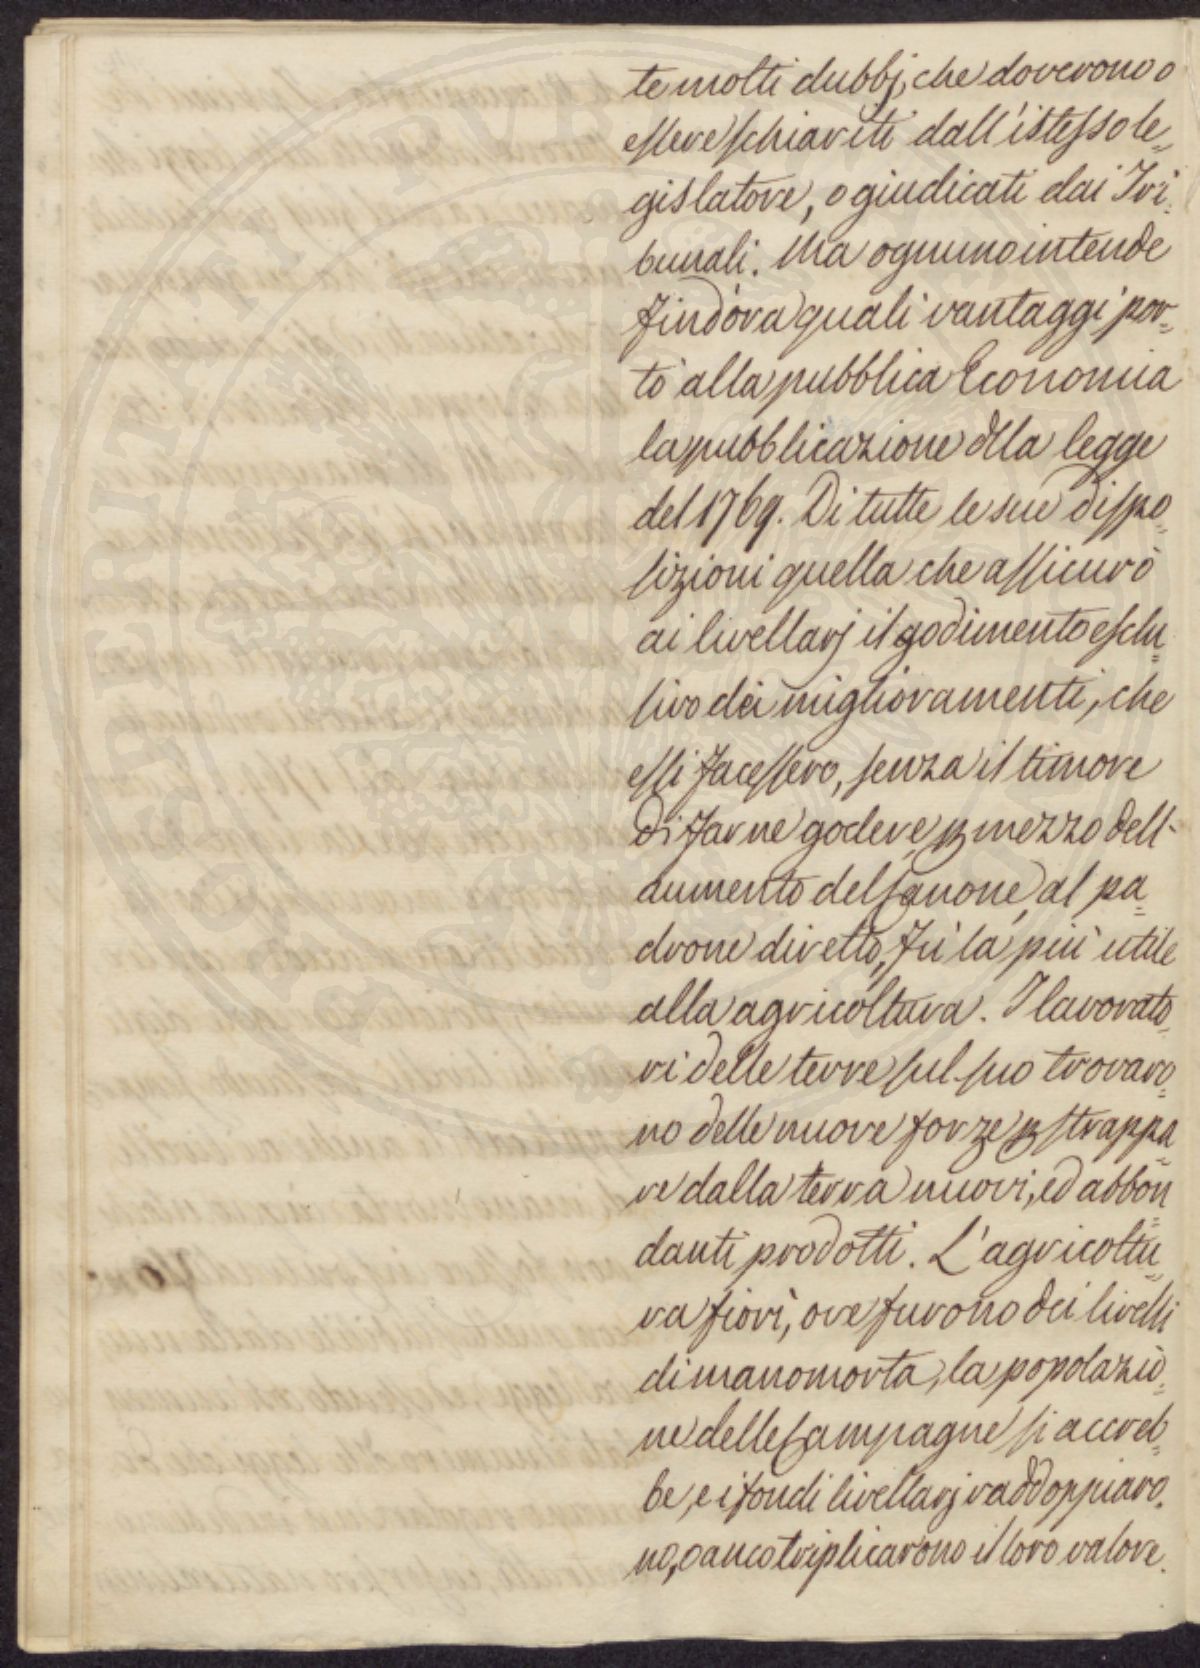 te molti dubbj, che doverono o
essere schiariti dall'istesso le=
gislatore, o giudicati dai Tri=
bunali. Ma ognuno intende
find'ora quali vantaggi por=
tò alla pubblica Economia
la pubblicazione dlla legge
del 1769. Di tutte le sue dispo=
sizioni quella che assicurò
ai livellarj il godimento esclu=
sivo dei miglioramenti, che
essi facessero, senza il timore
di farne godere, p mezzo dell'
aumento del Canone, al pa=
drone diretto, fù la più utile
alla agricoltura. I lavorato=
ri delle terre sul suo trovaro=
no delle nuove forze p strappa=
re dalla terra nuovi, ed abbon=
danti prodotti. L'agricoltu=
ra fiorì, ove furono dei livelli
di manomorta, la popolazio=
ne delle Campagne si accreb=
be, e i fondi livellarj raddoppiaro=
no, o anco triplicarono il loro valore.